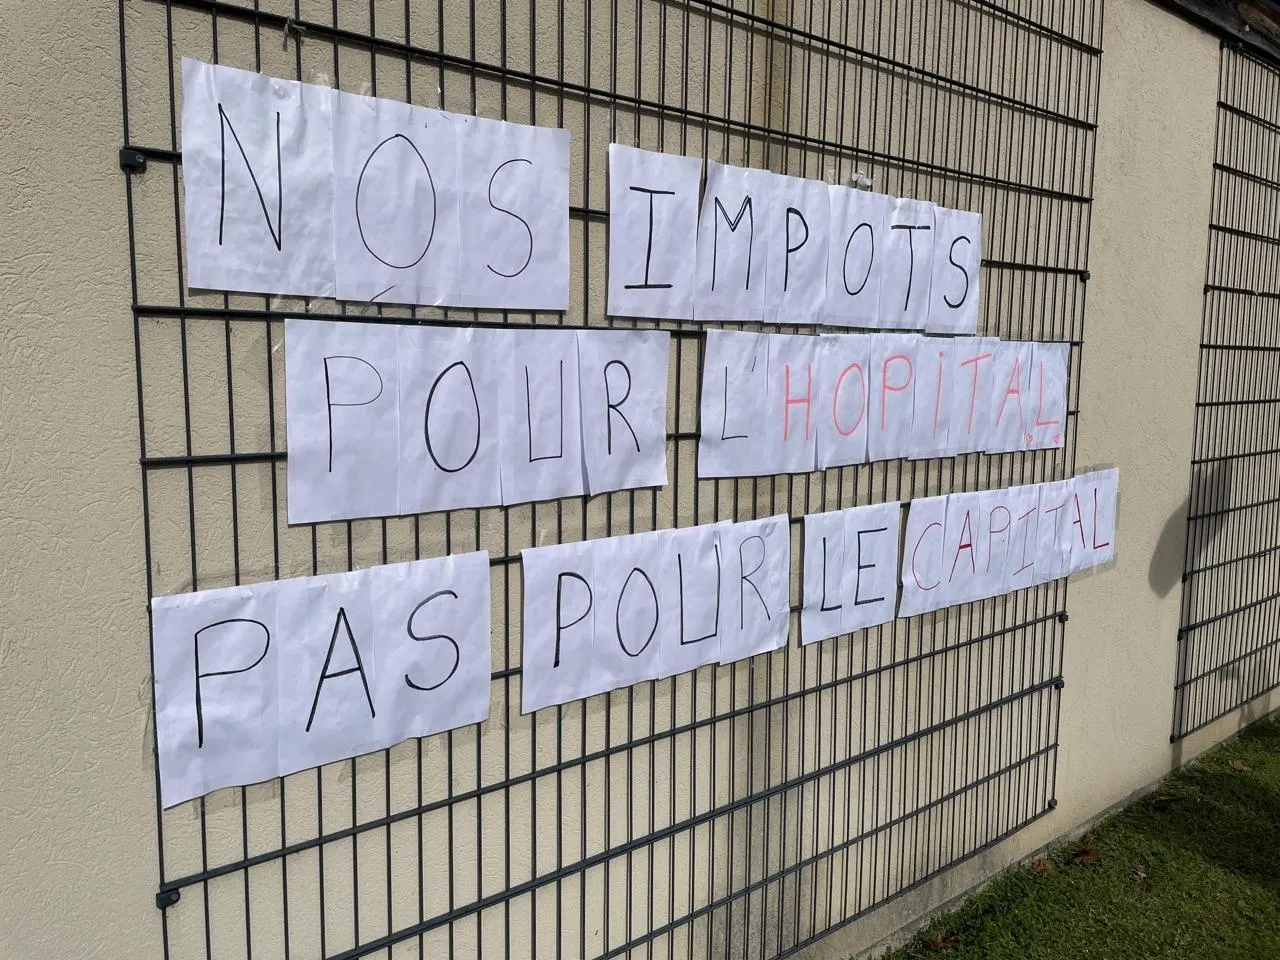 NOS IMPOTS
POUR L'HOPITAL
PAS POUR LE CAPITAL